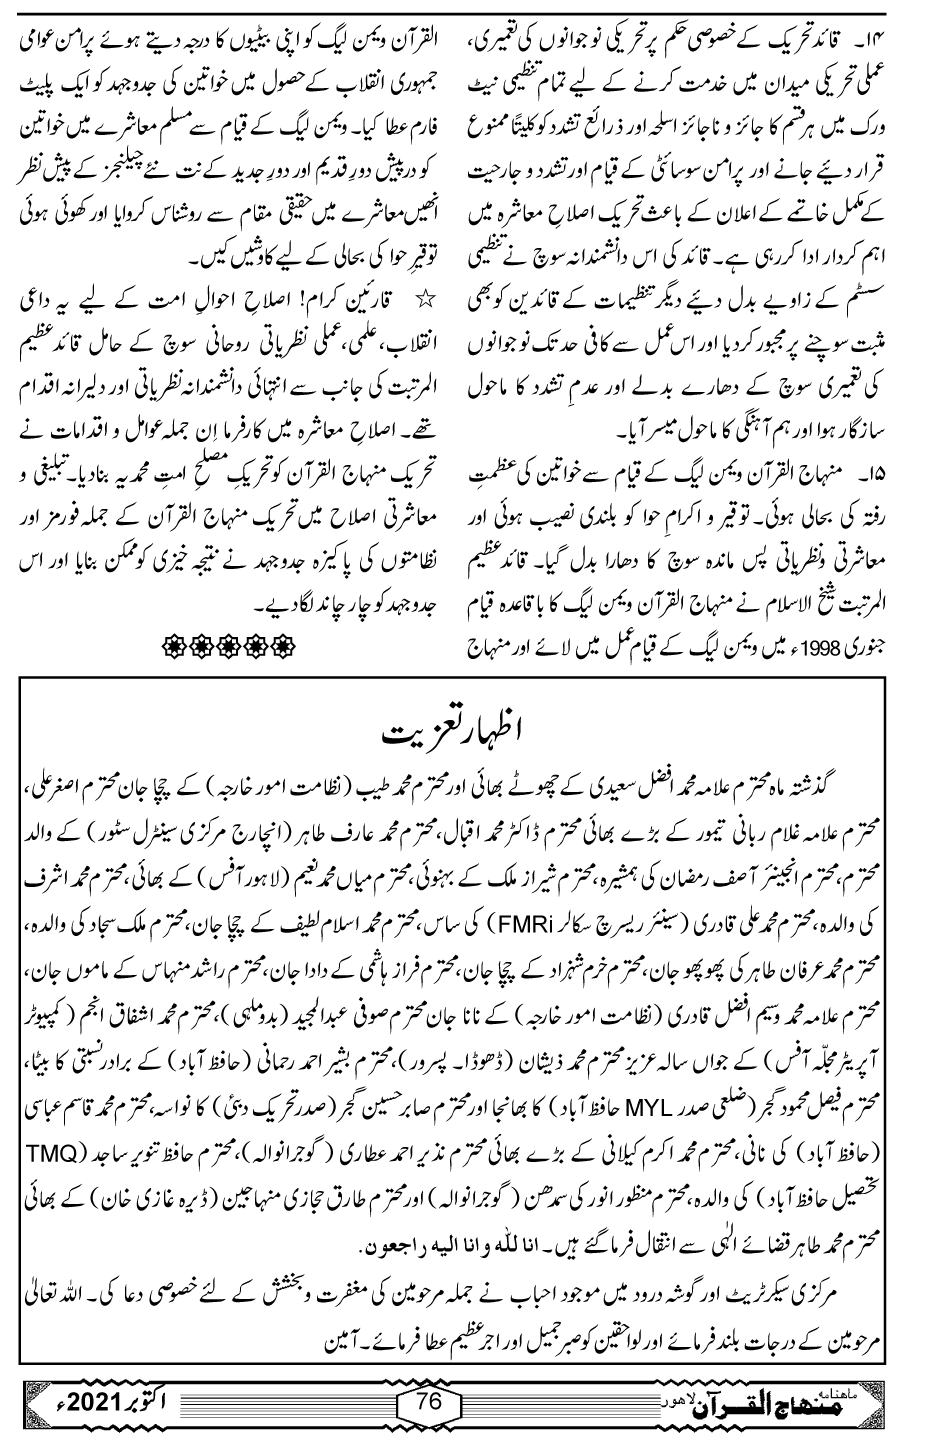 ۱۴۔ قائد تحریک کے خصوصی حکم پر تحریکی نوجوانوں کی تعمیری،
عملی تحریکی میدان میں خدمت کرنے کے لیے تمام تنظیمی نیٹ
ورک میں ہر قسم کا جائز و ناجائز اسلحہ اور ذرائع تشدد کو کلیتًا ممنوع
قرار دیئے جانے اور پرامن سوسائٹی کے قیام اور تشدد و جارحیت
کے مکمل خاتمے کے اعلان کے باعث تحریک اصلاحِ معاشرہ میں
اہم کردار ادا کررہی ہے۔ قائد کی اس دانشمندانہ سوچ نے تنظیمی
سسٹم کے زاویے بدل دیئے دیگر تنظیمات کے قائدین کو بھی
مثبت سوچنے پر مجبور کردیا اور اس عمل سے کافی حد تک نوجوانوں
کی تعمیری سوچ کے دھارے بدلے اور عدمِ تشدد کا ماحول
سازگار ہوا اور ہم آہنگی کا ماحول میسر آیا۔
۱۵۔ منہاج القرآن ویمن لیگ کے قیام سے خواتین کی عظمتِ
رفتہ کی بحالی ہوئی۔ توقیر و اکرامِ حوا کو بلندی نصیب ہوئی اور
معاشرتی ونظریاتی پس ماندہ سوچ کا دھارا بدل گیا۔ قائد عظیم
المرتبت شیخ الاسلام نے منہاج القرآن ویمن لیگ کا باقاعدہ قیام
جنوری 1998ء میں ویمن لیگ کے قیام عمل میں لائے اور منہاج
القرآن ویمن لیگ کو اپنی بیٹیوں کا درجہ دیتے ہوئے پرامن عوامی
جمہوری انقلاب کے حصول میں خواتین کی جدوجہد کو ایک پلیٹ
فارم عطا کیا۔ ویمن لیگ کے قیام سے مسلم معاشرے میں خواتین
کو درپیش دورِ قدیم اور دورِ جدید کے نت نئے چیلنجز کے پیش نظر
انھیں معاشرے میں حقیقی مقام سے روشناس کروایا اور کھوئی ہوئی
توقیرِ حوا کی بحالی کے لیے کاوشیں کیں۔
☆ قارئین کرام! اصلاحِ احوالِ امت کے لیے یہ داعی
انقلاب، علمی، عملی نظریاتی روحانی سوچ کے حامل قائد عظیم
المرتبت کی جانب سے انتہائی دانشمندانہ نظریاتی اور دلیرانہ اقدام
تھے۔ اصلاحِ معاشرہ میں کارفرما اِن جملہ عوامل و اقدامات نے
تحریک منہاج القرآن کو تحریکِ مصلحِ امتِ محمدیہ بنادیا۔ تبلیغی و
معاشرتی اصلاح میں تحریک منہاج القرآن کے جملہ فورمز اور
نظامتوں کی پاکیزہ جدوجہد نے نتیجہ خیزی کو ممکن بنایا اور اس
جدوجہد کو چار چاند لگادیے۔
اظہار تعزیت
گذشتہ ماہ محترم علامہ محمد افضل سعیدی کے چھوٹے بھائی اور محترم محمد طیب (نظامت امور خارجہ) کے چچا جان محترم اصغر علی،
محترم علامہ غلام ربانی تیمور کے بڑے بھائی محترم ڈاکٹر محمد اقبال، محترم محمد عارف طاہر (انچارج مرکزی سینٹرل سٹور) کے والد
محترم، محترم انجینئر آصف رمضان کی ہمشیرہ، محترم شیراز ملک کے بہنوئی، محترم میاں محمد نعیم (لاہور آفس) کے بھائی، محترم محمد اشرف
کی والدہ، محترم محمد علی قادری (سینئر ریسرچ سکالر FMRi) کی ساس، محترم محمد اسلام لطیف کے چچا جان، محترم ملک سجاد کی والدہ،
محترم محمد عرفان طاہر کی پھوپھو جان، محترم خرم شہزاد کے چچا جان، محترم فراز ہاشمی کے دادا جان، محترم راشد منہاس کے ماموں جان،
محترم علامہ محمد وسیم افضل قادری (نظامت امور خارجہ) کے نانا جان محترم صوفی عبدالمجید (بدوملہی)، محترم محمد اشفاق انجم (کمپیوٹر
آپریٹر مجلّہ آفس) کے جواں سالہ عزیز محترم محمد ذیشان (ڈھوڈا۔ پسرور)، محترم بشیر احمد رحمانی (حافظ آباد) کے برادر نسبتی کا بیٹا،
محترم فیصل محمود گجر (ضلعی صدر MYL حافظ آباد) کا بھانجا اور محترم صابر حسین گجر (صدر تحریک دبئی) کا نواسہ، محترم محمد قاسم عباسی
(حافظ آباد) کی نانی، محترم محمد اکرم کیلانی کے بڑے بھائی محترم نذیر احمد عطاری (گوجرانوالہ)، محترم حافظ تنویر ساجد (TMQ
تحصیل حافظ آباد) کی والدہ، محترم منظور انور کی سمدھن (گوجرانوالہ) اور محترم طارق حجازی منہاجین (ڈیرہ غازی خان) کے بھائی
محترم محمد طاہر قضائے الٰہی سے انتقال فرماگئے ہیں۔ انا للہ وانا الیہ راجعون۔
مرکزی سیکرٹریٹ اور گوشہ درود میں موجود احباب نے جملہ مرحومین کی مغفرت و بخشش کے لئے خصوصی دعا کی۔ اللہ تعالیٰ
مرحومین کے درجات بلند فرمائے اور لواحقین کو صبر جمیل اور اجر عظیم عطا فرمائے۔ آمین
ماہنامہ منہاج القرآن لاہور 76 اکتوبر 2021ء